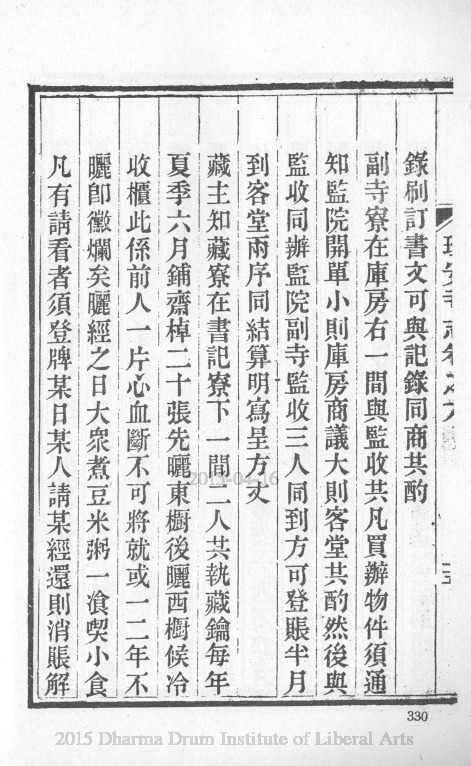 錄刷訂書文可與記錄同商共酌
副寺寮在庫房右一間與監收共凡買辦物件須通
知監院開單小則庫房商議大則客堂共酌然後與
監收同辦監院副寺監收三人同到方可登賬半月
到客堂兩序同結算明寫呈方丈
藏主知藏寮在書記寮下一間二人共執藏鑰每年
夏季六月鋪齋棹二十張先曬東櫥後曬西櫥候冷
收櫃此係前人一片心血斷不可將就或一二年不
曬卽黴爛矣曬經之日大衆煮豆米粥一飡喫小食
凡有請看者須登牌某日某人請某經還則消賬解
2015-04-16
330
2015 Dharma Drum Institute of Liberal Arts